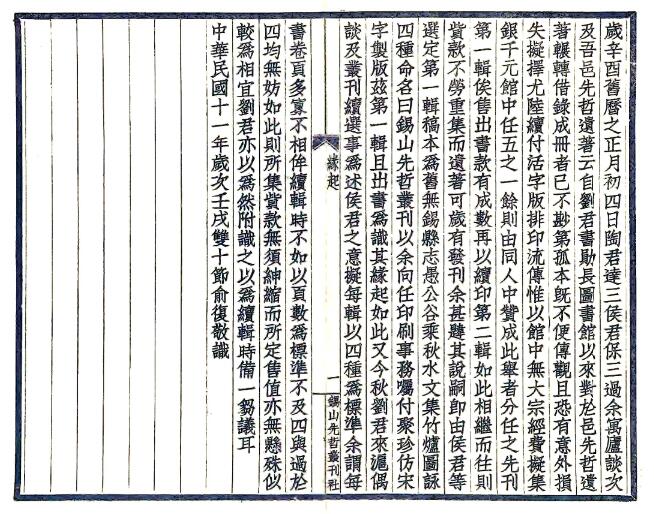 歲辛酉舊曆之正月初四日陶君達三侯君保三過余寓廬談次
及吾邑先哲遺著云自劉君書勛長圖書館以來對於邑先哲遺
著輾轉借錄成冊者已不尟第孤本旣不便傳觀且恐有意外損
失擬擇尤陸續付活字版排印流傳惟以館中無大宗經費擬集
銀千元館中任五之一餘則由同人中贊成此舉者分任之先刊
第一輯俟售出書款有成數再以續印第二輯如此相繼而往則
貲款不勞重集而遺著可歲有發刊余甚韙其說嗣卽由侯君等
選定第一輯稿本爲舊無錫縣志愚公谷乘秋水文集竹爐圖詠
四種命名曰錫山先哲叢刊以余向任印刷事務囑付聚珍仿宋
字製版茲第一輯且出書爲識其緣起如此又今秋劉君來滬偶
談及叢刊續選事爲述侯君之意擬每輯以四種爲標準余謂每
緣起
一
錫山先哲叢刊社
書卷頁多寡不相侔續輯時不如以頁數爲標準不及四與過於
四均無妨如此則所集貲款無須紳縮而所定售值亦無懸殊似
較爲相宜劉君亦以爲然附識之以爲續輯時備一芻議耳
中華民國十一年歲次壬戌雙十節俞復敬識